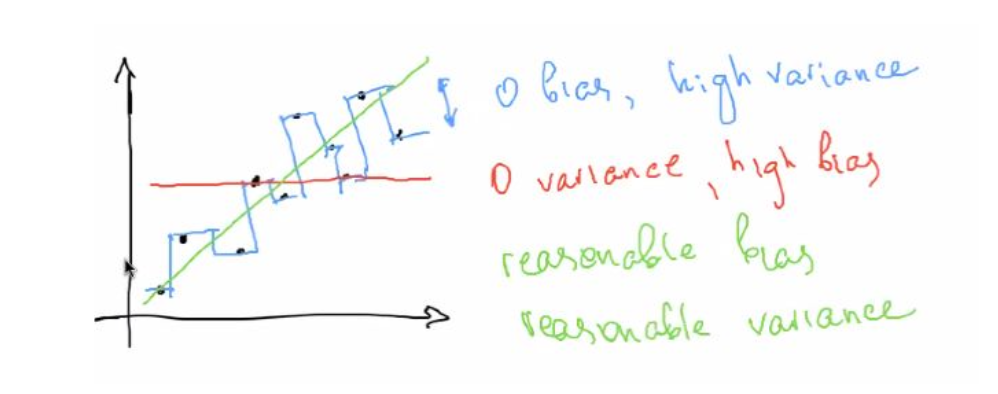 0 bias, high variance
0 variance, high bias
reasonable bias
reasonable variance